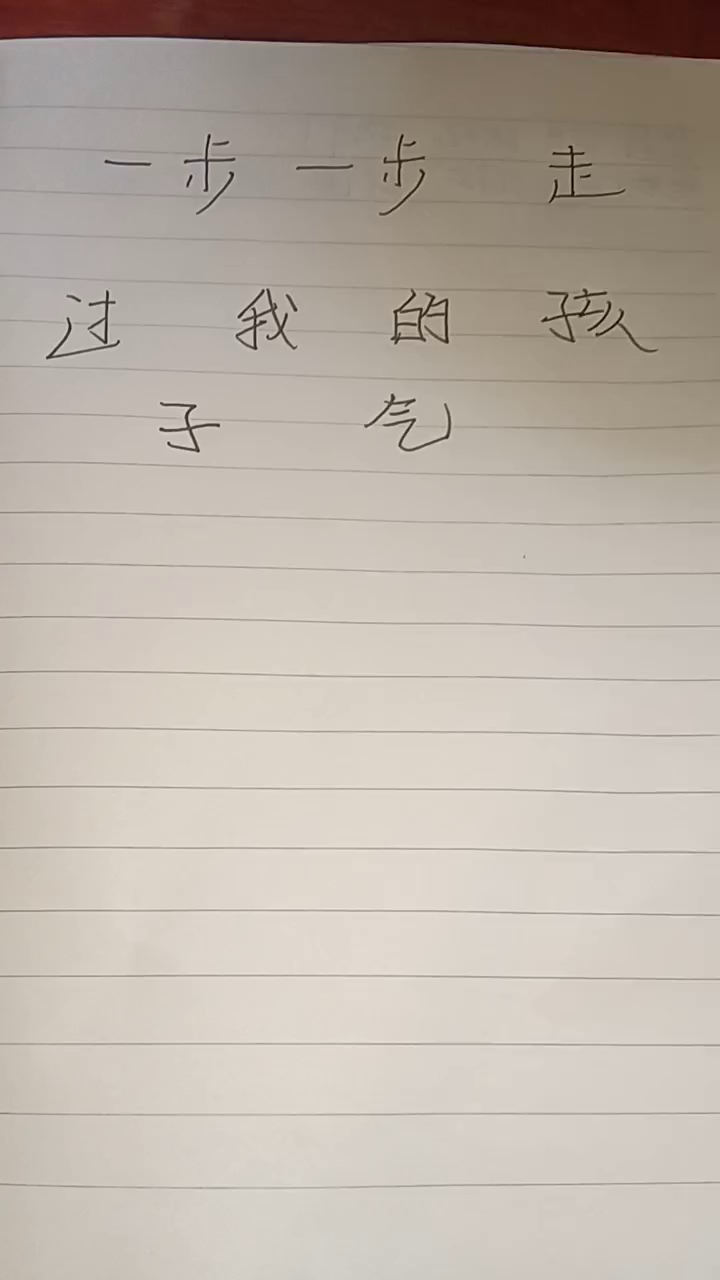 一步一步 走
过 我 的 孩
子 气